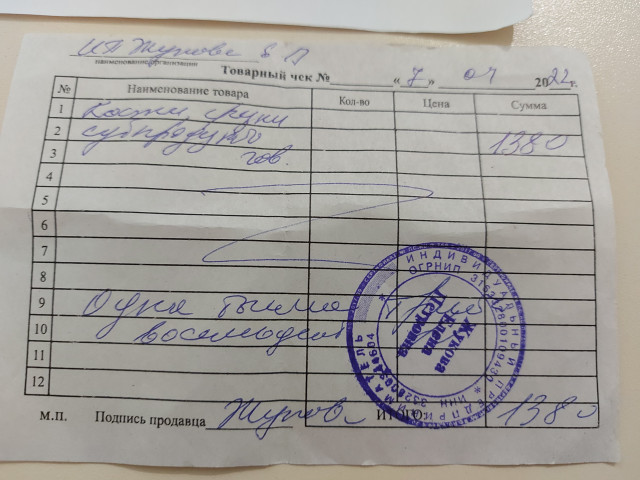 ИП Жукова Е П
наименование организации
Товарный чек № «7» 04 2022г.
№ Наименование товара Кол-во Цена Сумма
1
2 субпродукты 1380
3 гов.
4
5
6
7
8
9 Одна тысяча триста
10 восемьдесят
11
12
М.П. Подпись продавца Жуков ИТОГО: 1380
ИНДИВИДУАЛЬНЫЙ ПРЕДПРИНИМАТЕЛЬ
ОГРНИП
ИНН
Жукова
Елена
Петровна